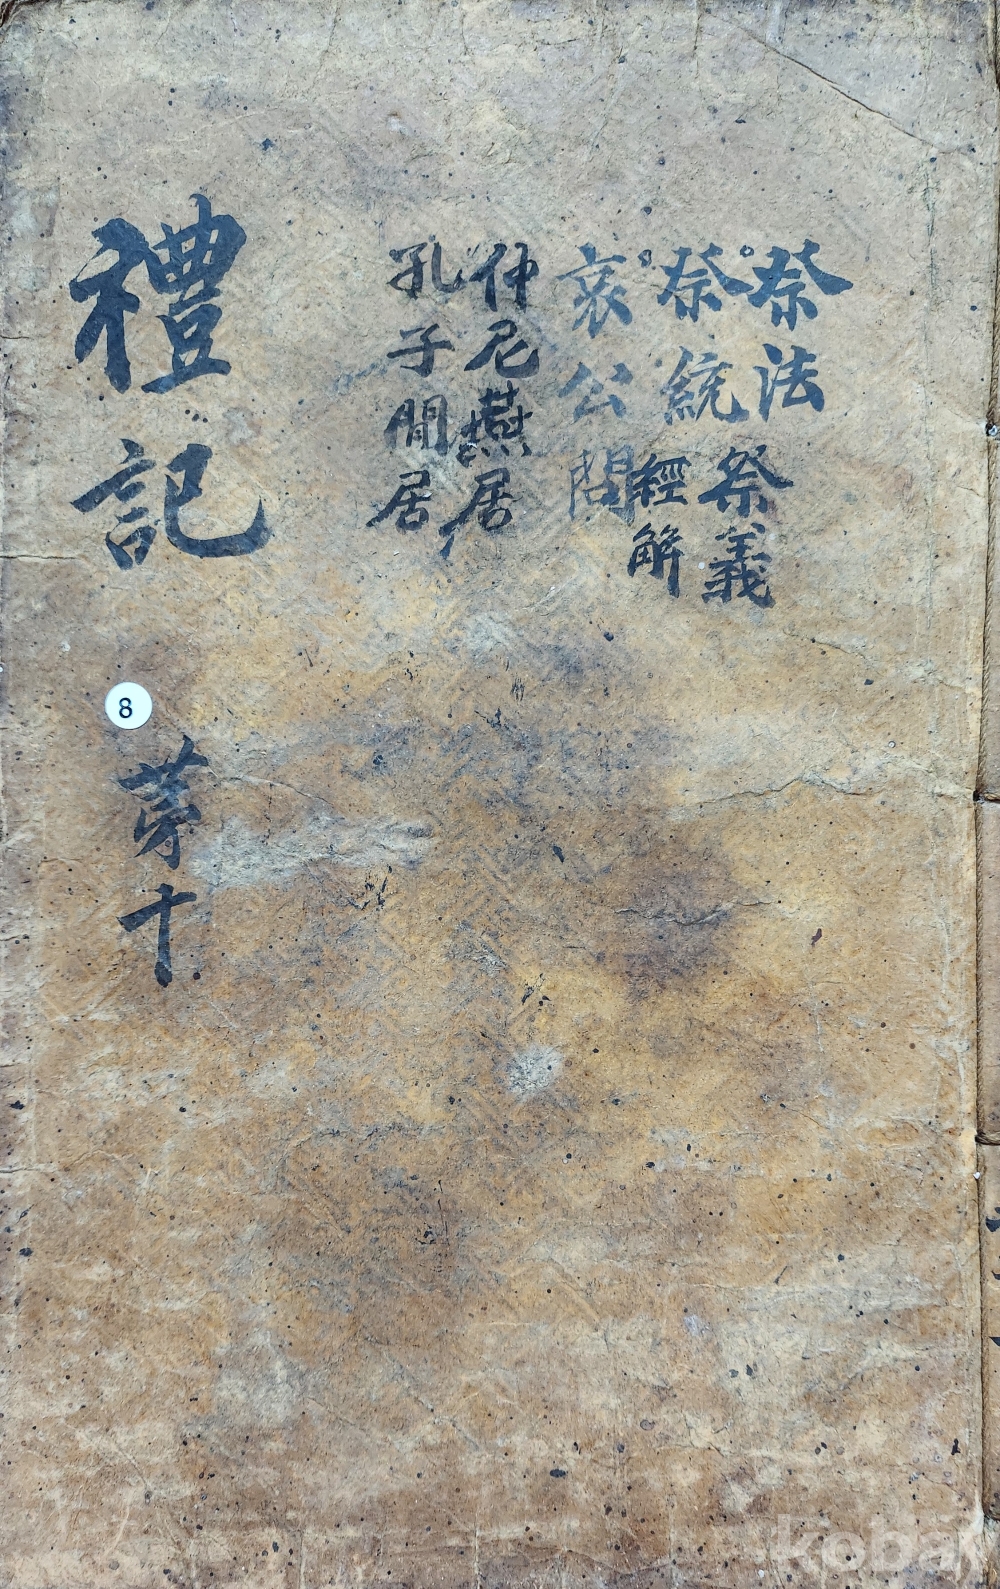 祭法 祭義
祭統 經解
哀公問
仲尼燕居
孔子閒居
禮記
第十
8
kobay